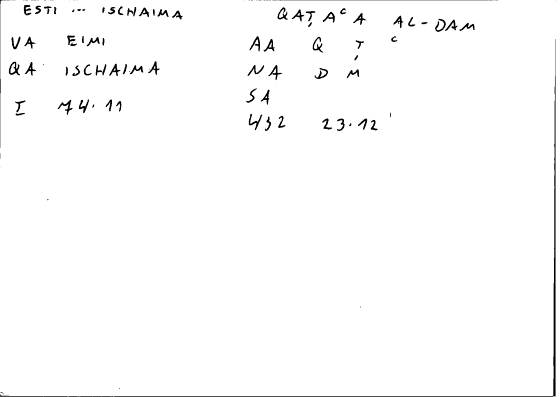 ESTI ... ISCHAIMA
VA EIMI
QA ISCHAIMA
I 74.11
QAṬAᶜA AL-DAM
AA Q Ṭ ᶜ
NA D M
SA
432 23.12